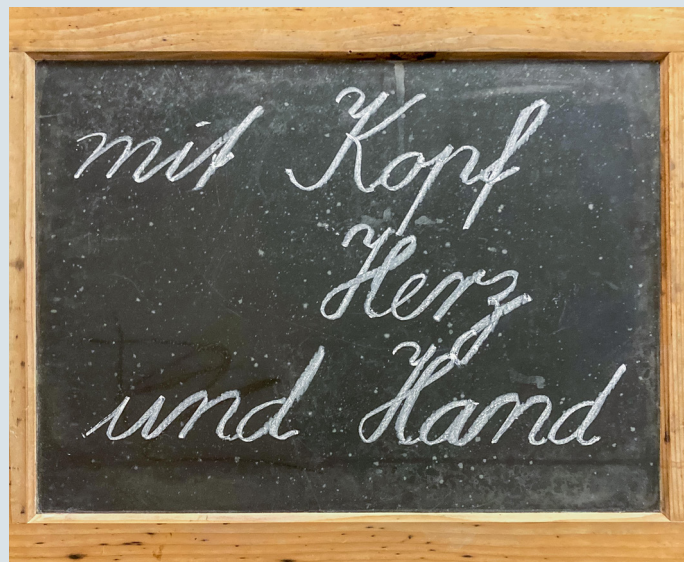 mit Kopf
Herz
und Hand